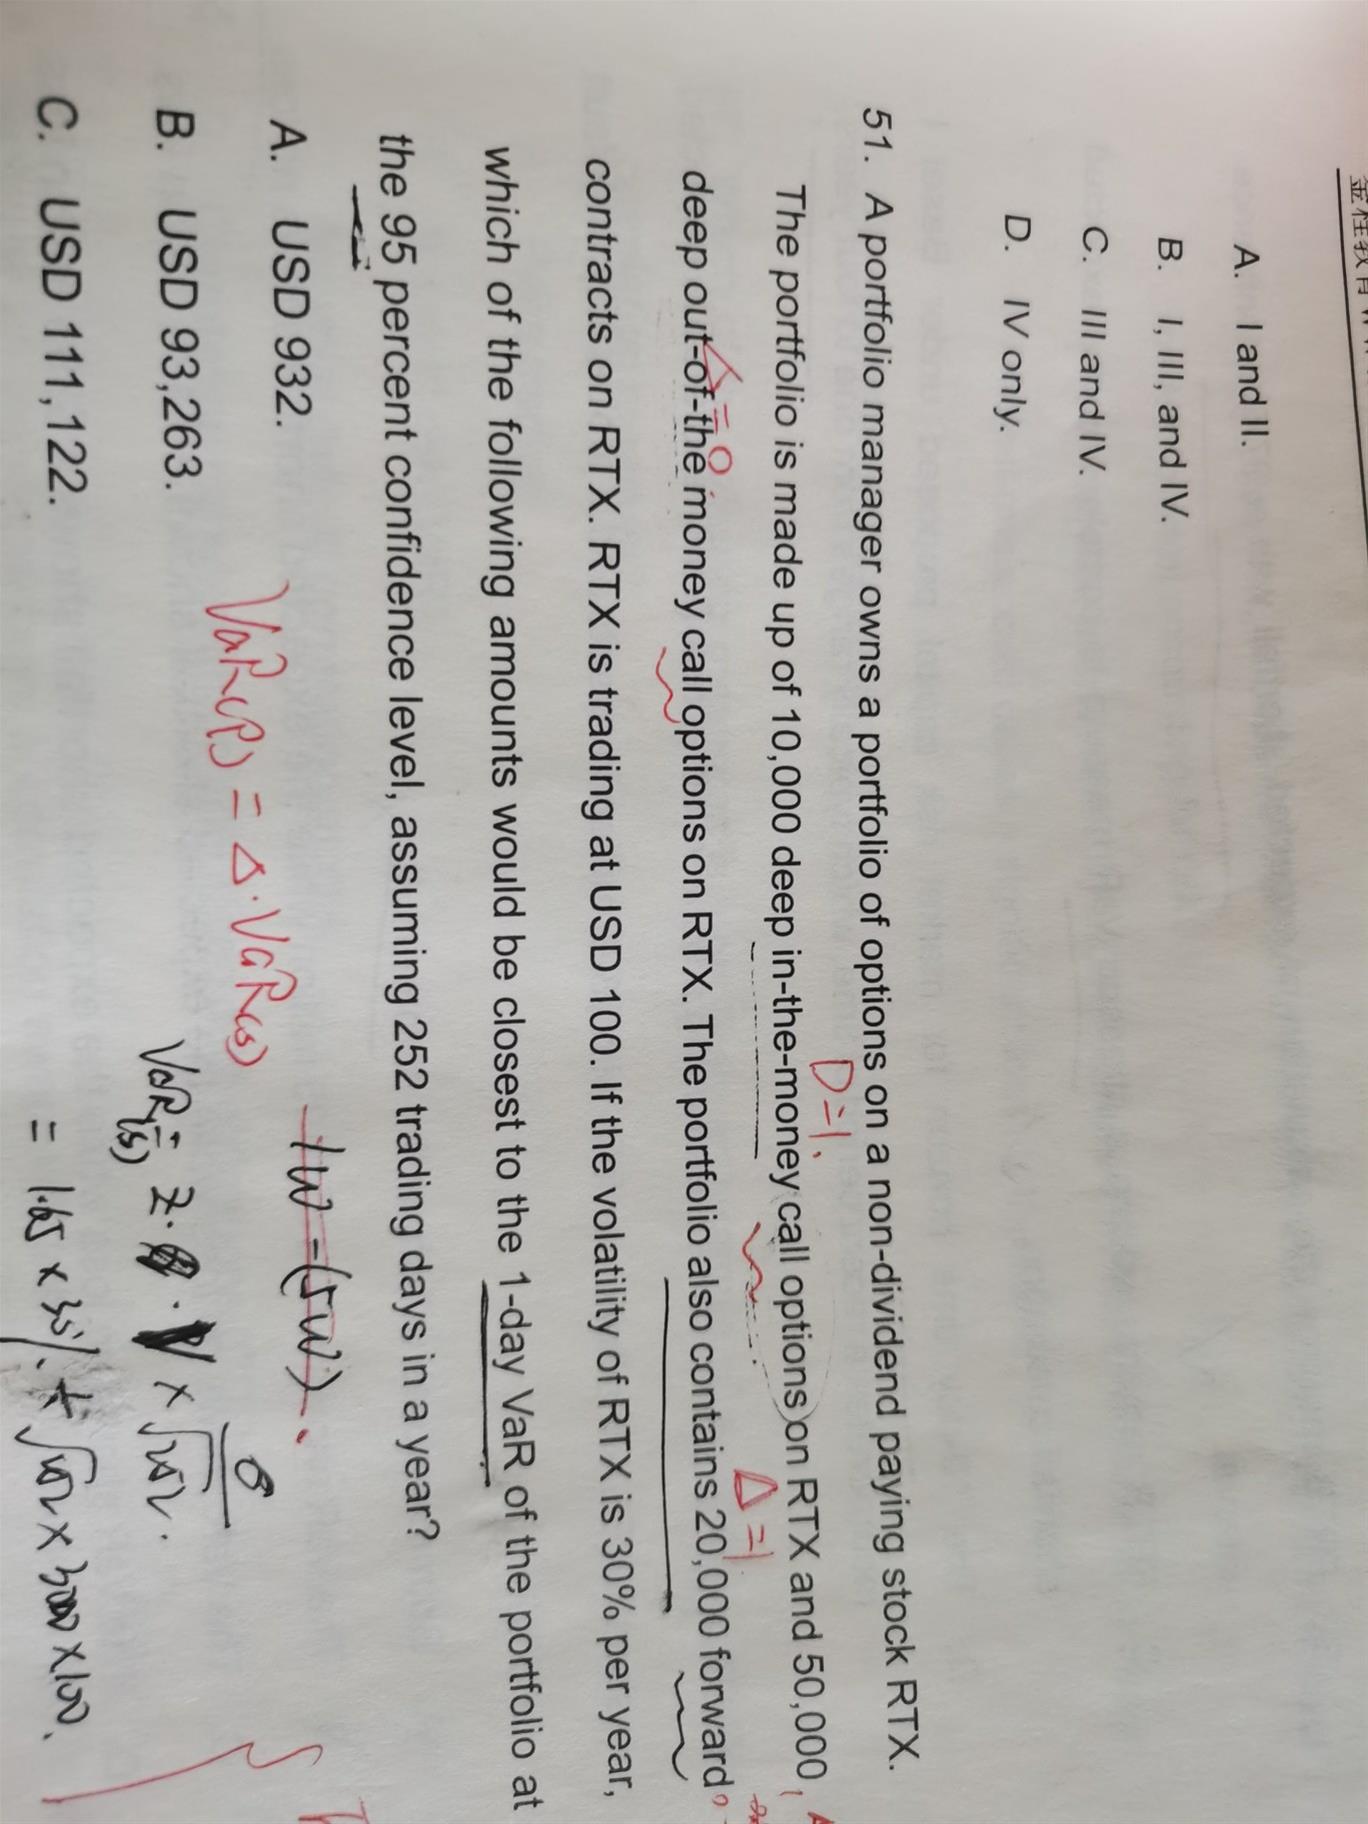 金程教育
A. I and II.
B. I, III, and IV.
C. III and IV.
D. IV only.
51. A portfolio manager owns a portfolio of options on a non-dividend paying stock RTX.
D=1.
The portfolio is made up of 10,000 deep in-the-money call options on RTX and 50,000
Δ=0
Δ=1
deep out-of-the money call options on RTX. The portfolio also contains 20,000 forward
contracts on RTX. RTX is trading at USD 100. If the volatility of RTX is 30% per year,
which of the following amounts would be closest to the 1-day VaR of the portfolio at
the 95 percent confidence level, assuming 252 trading days in a year?
A. USD 932.
B. USD 93,263.
VaR(P) = Δ·VaR(s)
C. USD 111,122.